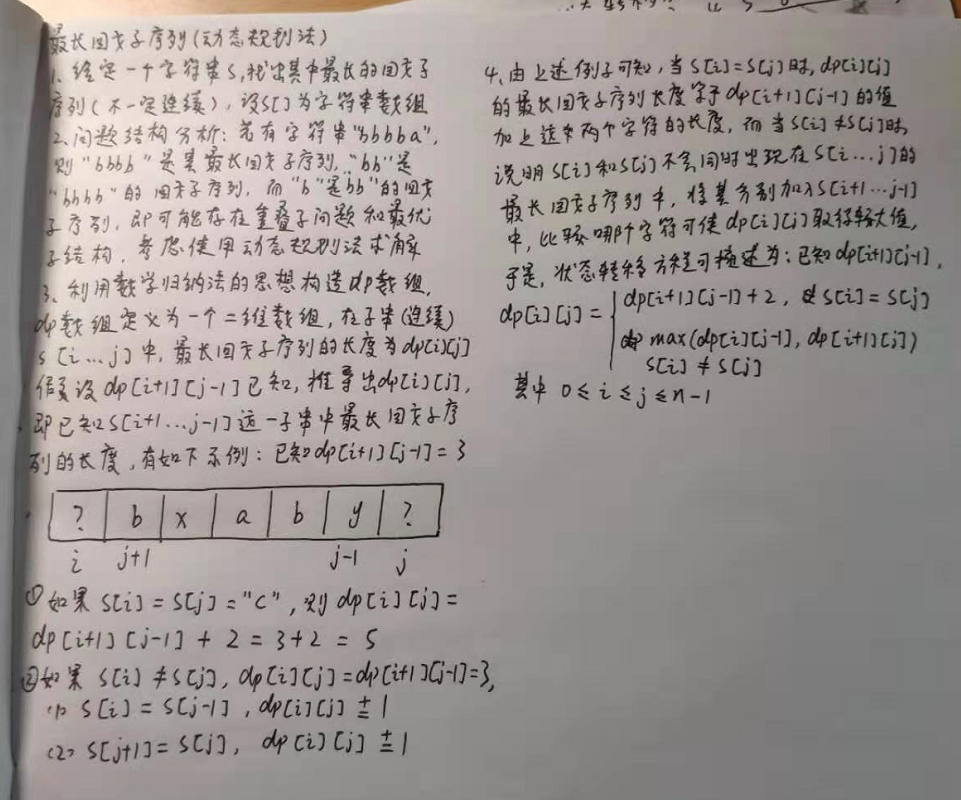 最长回文子序列(动态规划法)
1、给定一个字符串s,找出其中最长的回文子
序列(不一定连续),设s[]为字符串数组
2、问题结构分析:若有字符串"bbbba",
则"bbbb"是其最长回文子序列,"bb"是
"bbbb"的回文子序列,而"b"是"bb"的回文
子序列,即可能存在重叠子问题和最优
子结构,考虑使用动态规划法求解
3、利用数学归纳法的思想构造dp数组,
dp数组定义为一个二维数组,在子串(连续)
s[i...j]中,最长回文子序列的长度为dp[i][j]
假设dp[i+1][j-1]已知,推导出dp[i][j],
即已知s[i+1...j-1]这一子串中最长回文子序
列的长度,有如下示例:已知dp[i+1][j-1]=3
? b x a b y ?
i j+1 j-1 j
①如果s[i]=s[j]="c",则dp[i][j]=
dp[i+1][j-1]+2=3+2=5
②如果s[i]≠s[j],dp[i][j]=dp[i+1][j-1]=3,
(1) s[i]=s[j-1],dp[i][j]+=1
(2) s[j+1]=s[j],dp[i][j]+=1
4、由上述例子可知,当s[i]=s[j]时,dp[i][j]
的最长回文子序列长度等于dp[i+1][j-1]的值
加上这来两个字符的长度,而当s[i]≠s[j]时,
说明s[i]和s[j]不会同时出现在s[i...j]的
最长回文子序列中,将其分别加入s[i+1...j-1]
中,比较哪个字符可使dp[i][j]取得较大值,
于是,状态转移方程可描述为:已知dp[i+1][j-1],
dp[i][j]={dp[i+1][j-1]+2, s[i]=s[j]
max(dp[i][j-1],dp[i+1][j])
s[i]≠s[j]
其中0≤i≤j≤n-1